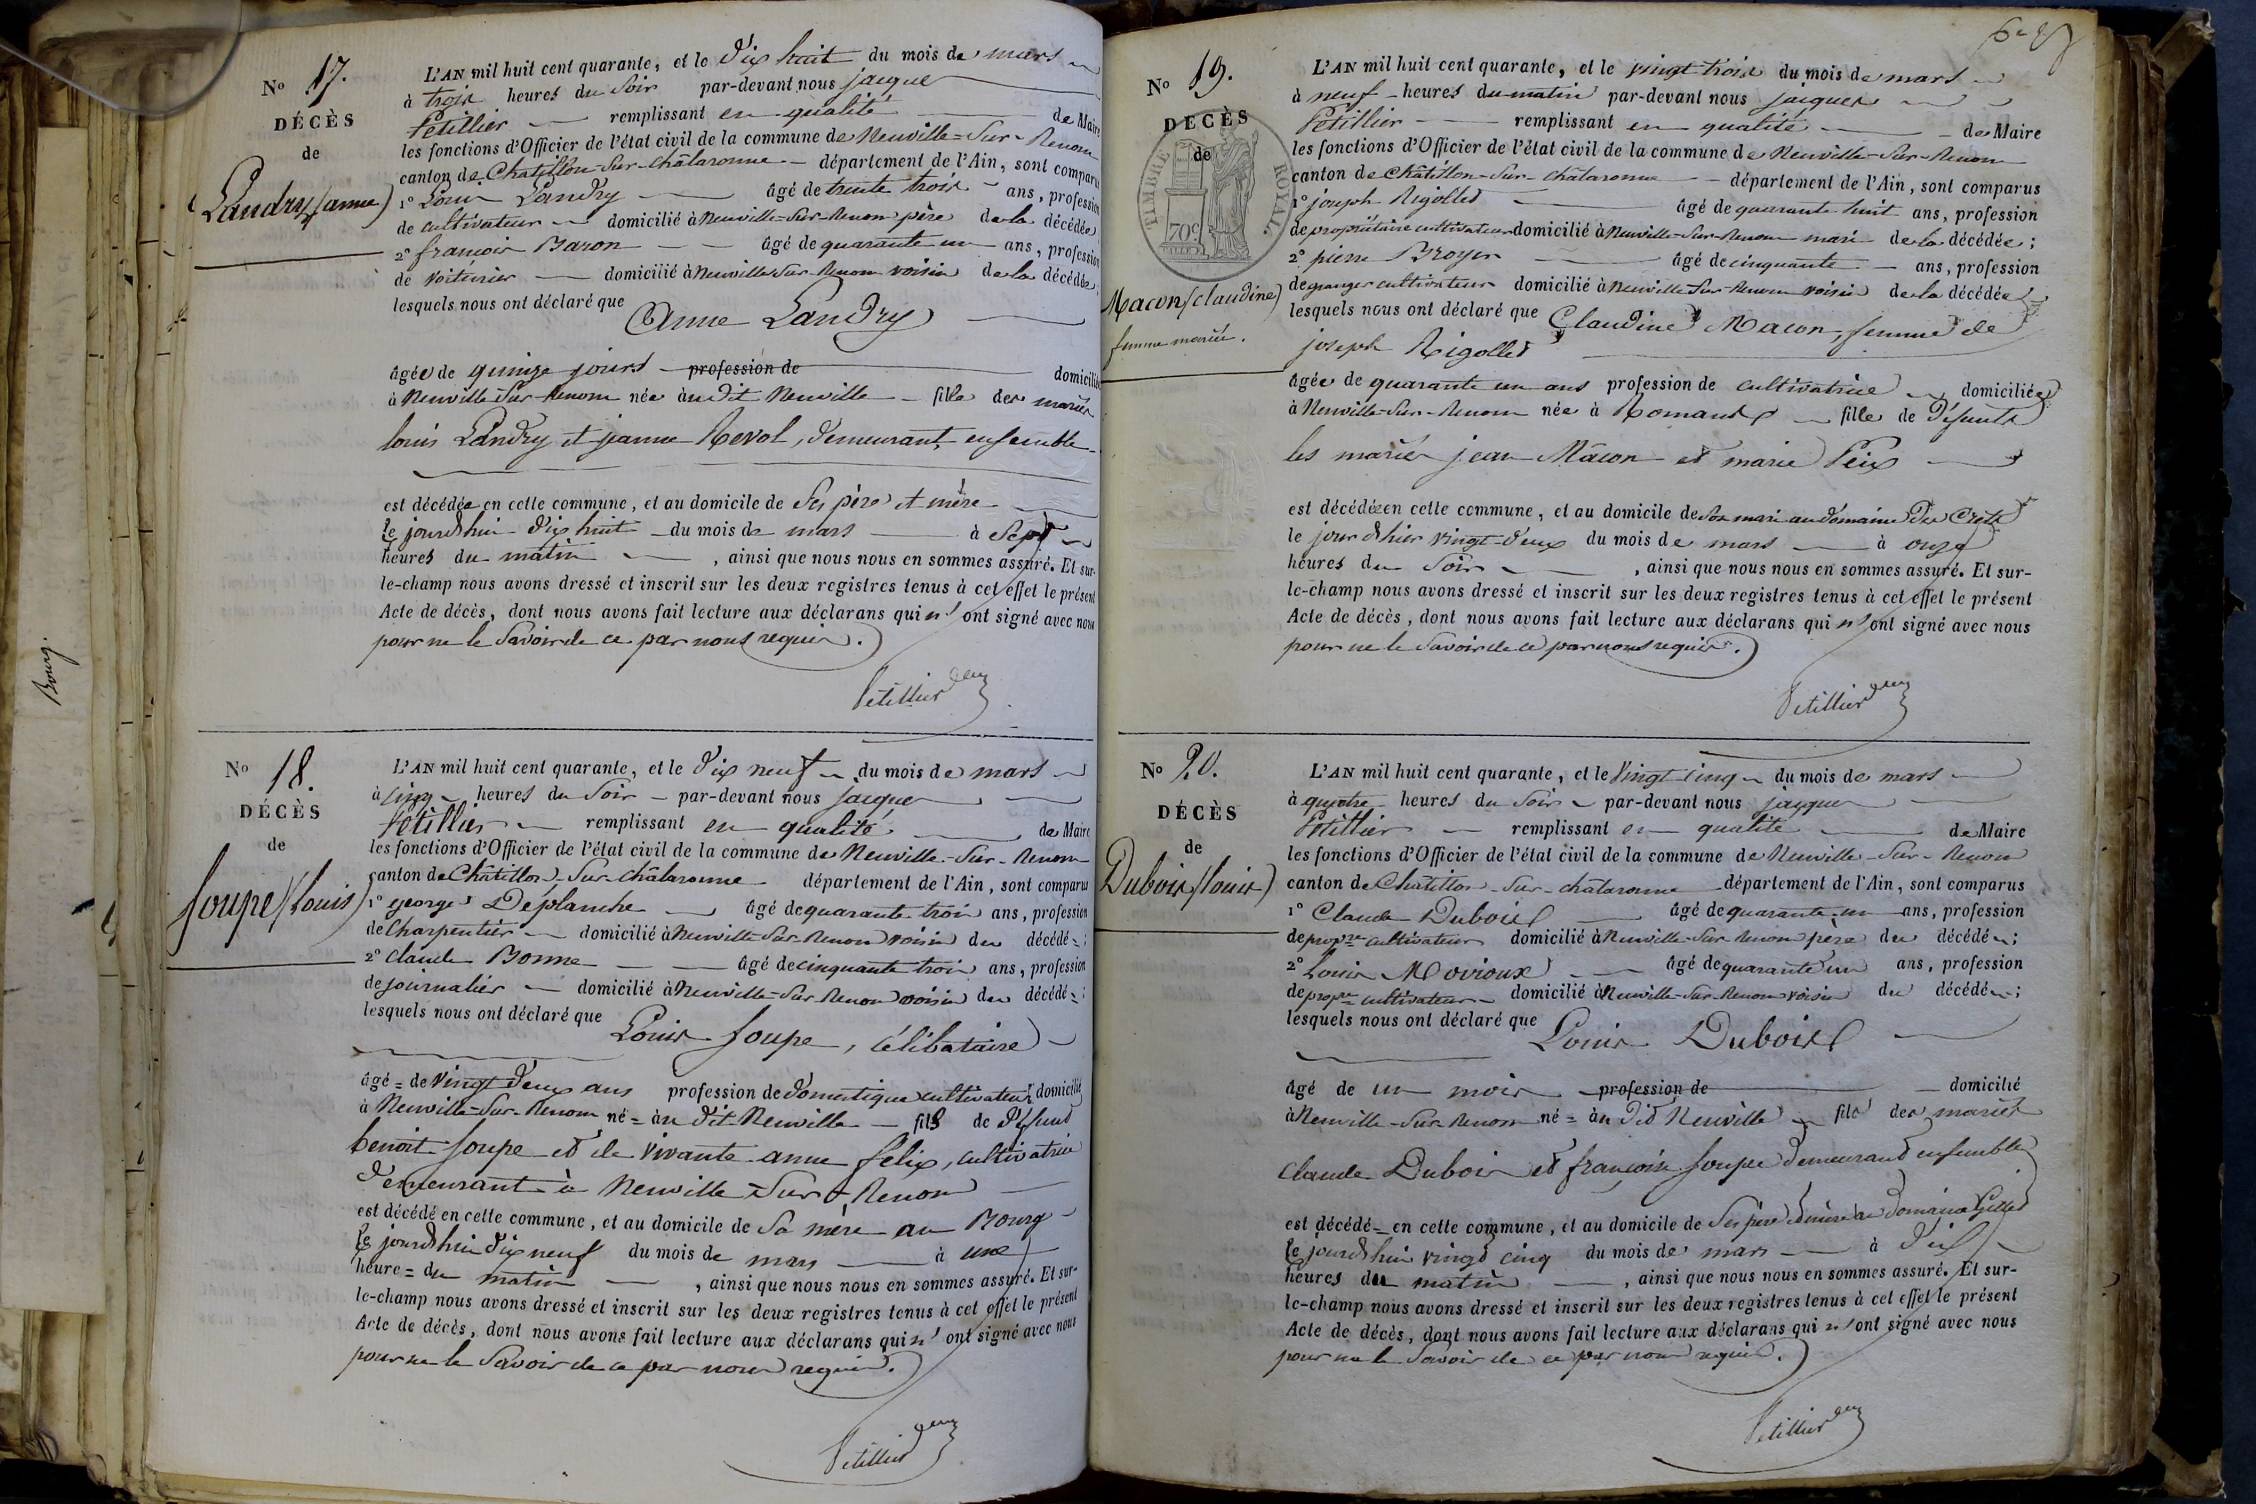 Bourg.
No 17.
DÉCÈS
de
Landry (anne)
L'AN mil huit cent quarante, et le dix huit du mois de mars
à trois heures du soir par-devant nous jacques
Petillier remplissant en qualité de Maire
les fonctions d'Officier de l'état civil de la commune de Neuville-Sur-Renom
canton de Chatillon-Sur-châlaronne département de l'Ain, sont comparus
1° Louis Landry âgé de trente trois ans, profession
de cultivateur domicilié à Neuville-Sur-Renom père de la décédée
2° françois Baron âgé de quarante un ans, profession
de voiturier domicilié à Neuville Sur Renom voisin de la décédée,
lesquels nous ont déclaré que Anne Landry
âgée de quinze jours profession de domiciliée
à Neuville Sur Renom née au dit Neuville fille des mariés
louis Landry et jeanne Revol, demeurant ensemble
est décédée en cette commune, et au domicile de ses père et mère
le jourd'hui dix huit du mois de mars à sept
heures du matin, ainsi que nous nous en sommes assuré. Et sur-
le-champ nous avons dressé et inscrit sur les deux registres tenus à cet effet le présent
Acte de décès, dont nous avons fait lecture aux déclarans qui n'ont signé avec nous
pour ne le savoir de ce par nous requis.
Petillier
No 18.
DÉCÈS
de
Soupe (Louis)
L'AN mil huit cent quarante, et le dix neuf du mois de mars
à cinq heures du soir par-devant nous jacques
Petillier remplissant en qualité de Maire
les fonctions d'Officier de l'état civil de la commune de Neuville-Sur-Renom
canton de Châtillon-Sur-châlaronne département de l'Ain, sont comparus
1° george Déplanche âgé de quarante trois ans, profession
de Charpentier domicilié à Neuville-Sur-Renom voisin du décédé;
2° Claude Bonne âgé de cinquante trois ans, profession
de journalier domicilié à Neuville-Sur-Renom voisin du décédé;
lesquels nous ont déclaré que Louis Soupe, célibataire
âgé de vingt deux ans profession de domestique cultivateur domicilié
à Neuville-Sur-Renom né au dit Neuville fils de défunt
benoit Soupe et de vivante anne félix, cultivatrice
demeurant à Neuville Sur Renom
est décédé en cette commune, et au domicile de sa mère au Bourg
le jourd'hui dix neuf du mois de mars à une
heure du matin, ainsi que nous nous en sommes assuré. Et sur-
le-champ nous avons dressé et inscrit sur les deux registres tenus à cet effet le présent
Acte de décès, dont nous avons fait lecture aux déclarans qui n'ont signé avec nous
pour ne le savoir de ce par nous requis.
Petillier
No 19.
DÉCÈS
de
TIMBRE ROYAL.
70c
Macon (claudine)
femme mariée.
L'AN mil huit cent quarante, et le vingt trois du mois de mars
à neuf heures du matin par-devant nous jacques
Petillier remplissant en qualité de Maire
les fonctions d'Officier de l'état civil de la commune de Neuville-Sur-Renom
canton de Châtillon-Sur-châlaronne département de l'Ain, sont comparus
1° joseph Rigollet âgé de quarante huit ans, profession
de propriétaire cultivateur domicilié à Neuville-Sur-Renom mari de la décédée;
2° pierre Broyer âgé de cinquante ans, profession
de granger cultivateur domicilié à Neuville-Sur-Renom voisin de la décédée
lesquels nous ont déclaré que Claudine Macon, femme de
joseph Rigollet
âgée de quarante un ans profession de cultivatrice domiciliée
à Neuville-Sur-Renom née à Romans fille de défunts
les mariés jean Mâcon et marie Peix
est décédée en cette commune, et au domicile de son mari au domaine des Crets
le jour d'hier vingt-deux du mois de mars à onze
heures du soir, ainsi que nous nous en sommes assuré. Et sur-
le-champ nous avons dressé et inscrit sur les deux registres tenus à cet effet le présent
Acte de décès, dont nous avons fait lecture aux déclarans qui n'ont signé avec nous
pour ne le savoir de ce par nous requis.
Petillier
No 20.
DÉCÈS
de
Dubois (louis)
L'AN mil huit cent quarante, et le vingt cinq du mois de mars
à quatre heures du soir par-devant nous jacques
Petillier remplissant en qualité de Maire
les fonctions d'Officier de l'état civil de la commune de Neuville-Sur-Renom
canton de Châtillon-Sur-châlaronne département de l'Ain, sont comparus
1° Claude Dubois âgé de quarante un ans, profession
de propre cultivateur domicilié à Neuville-Sur-Renom père du décédé;
2° Louis Movioux âgé de quarante un ans, profession
de propre cultivateur domicilié à Neuville-Sur-Renom voisin du décédé;
lesquels nous ont déclaré que Louis Dubois
âgé de un mois profession de domicilié
à Neuville-Sur-Renom né au dit Neuville fils des mariés
Claude Dubois et françoise Soupe demeurant ensemble
est décédé en cette commune, et au domicile de ses père et mère au domaine Gillet
le jourd'hui vingt cinq du mois de mars à dix
heures du matin, ainsi que nous nous en sommes assuré. Et sur-
le-champ nous avons dressé et inscrit sur les deux registres tenus à cet effet le présent
Acte de décès, dont nous avons fait lecture aux déclarans qui n'ont signé avec nous
pour ne le savoir de ce par nous requis.
Petillier